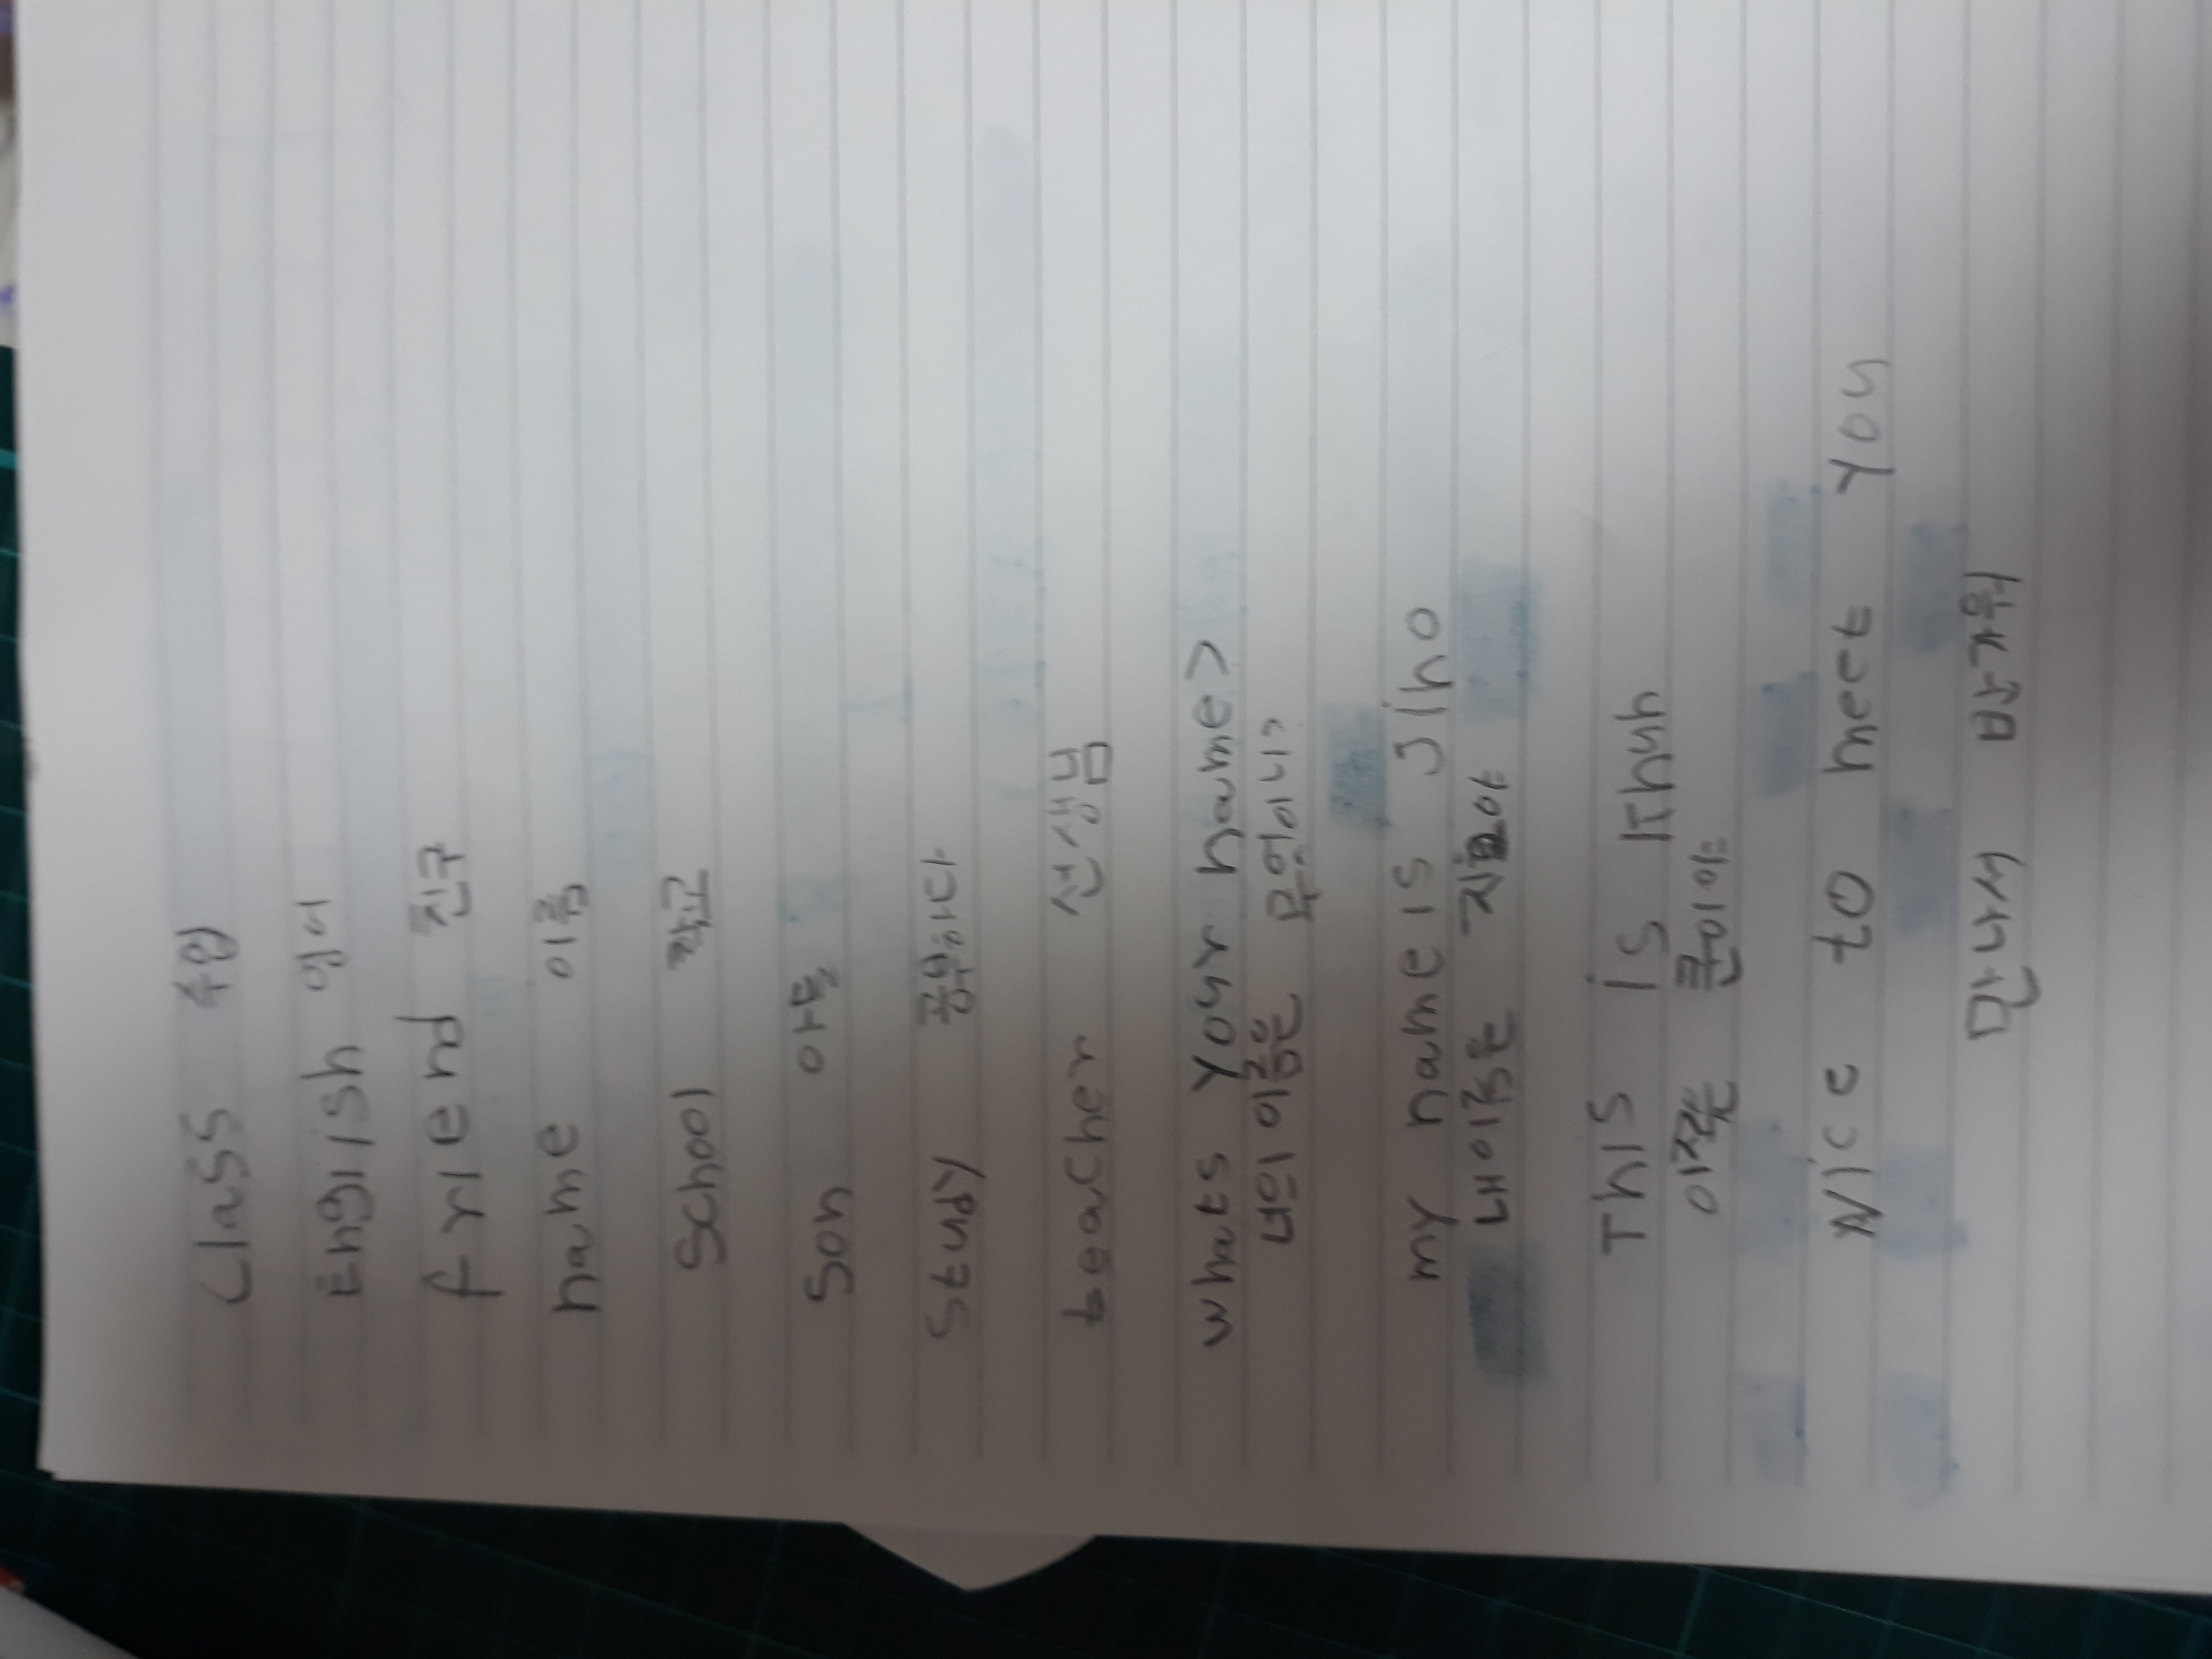 class 수업
English 영어
friend 친구
name 이름
school 학교
son 아들
study 공부하다
teacher 선생님
whats your name?
너의 이름은 무엇이니?
my name is Jiho
내이름은 지호야
This is Khuh
이쪽은 쿤이야
Nice to meet you
만나서 반가워